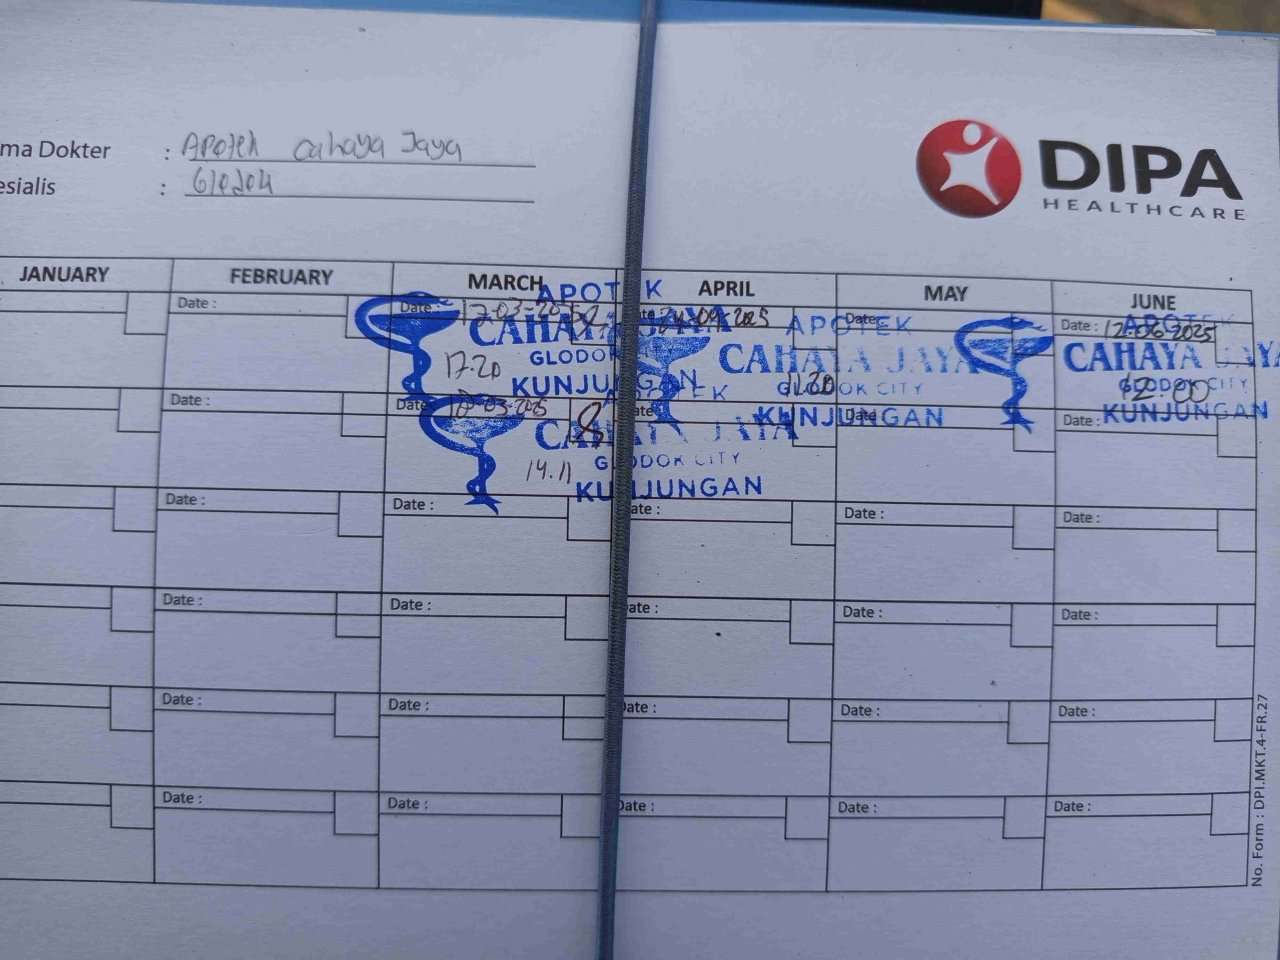 ma Dokter : Apotek Cahaya Jaya
esialis : Glodok
DIPA
HEALTHCARE
JANUARY FEBRUARY MARCH APRIL MAY JUNE
Date : Date : 17-03-2025 Date : Date : 12.06.2025
APOTEK
CAHAYA JAYA
GLODOK
KUNJUNGAN
17.20
APOTEK
CAHAYA JAYA
GLODOK CITY
KUNJUNGAN
11.20
APOTEK
CAHAYA JAYA
GLODOK CITY
KUNJUNGAN
12.00
Date : Date 18-03-2025 ate Date : Date :
APOTEK
CAHAYA JAYA
GLODOK CITY
KUNJUNGAN
14.11
Date : Date : ate : Date : Date :
Date : Date : ate : Date : Date :
Date : Date : Date : Date : Date :
Date : Date : Date : Date : Date :
No. Form : DPI.MKT.4-FR.27